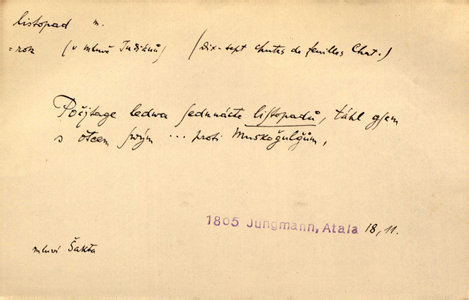 listopad m.
= rok (v mluvě Indiánů) (Dix-sept chutes de feuilles Chat.)
Počjtage ledwa sedmnácte listopadů, táhl gsem
s otcem swým ... proti Muskogulgům,
1805 Jungmann, Atala 18, 11.
mluví Šakta